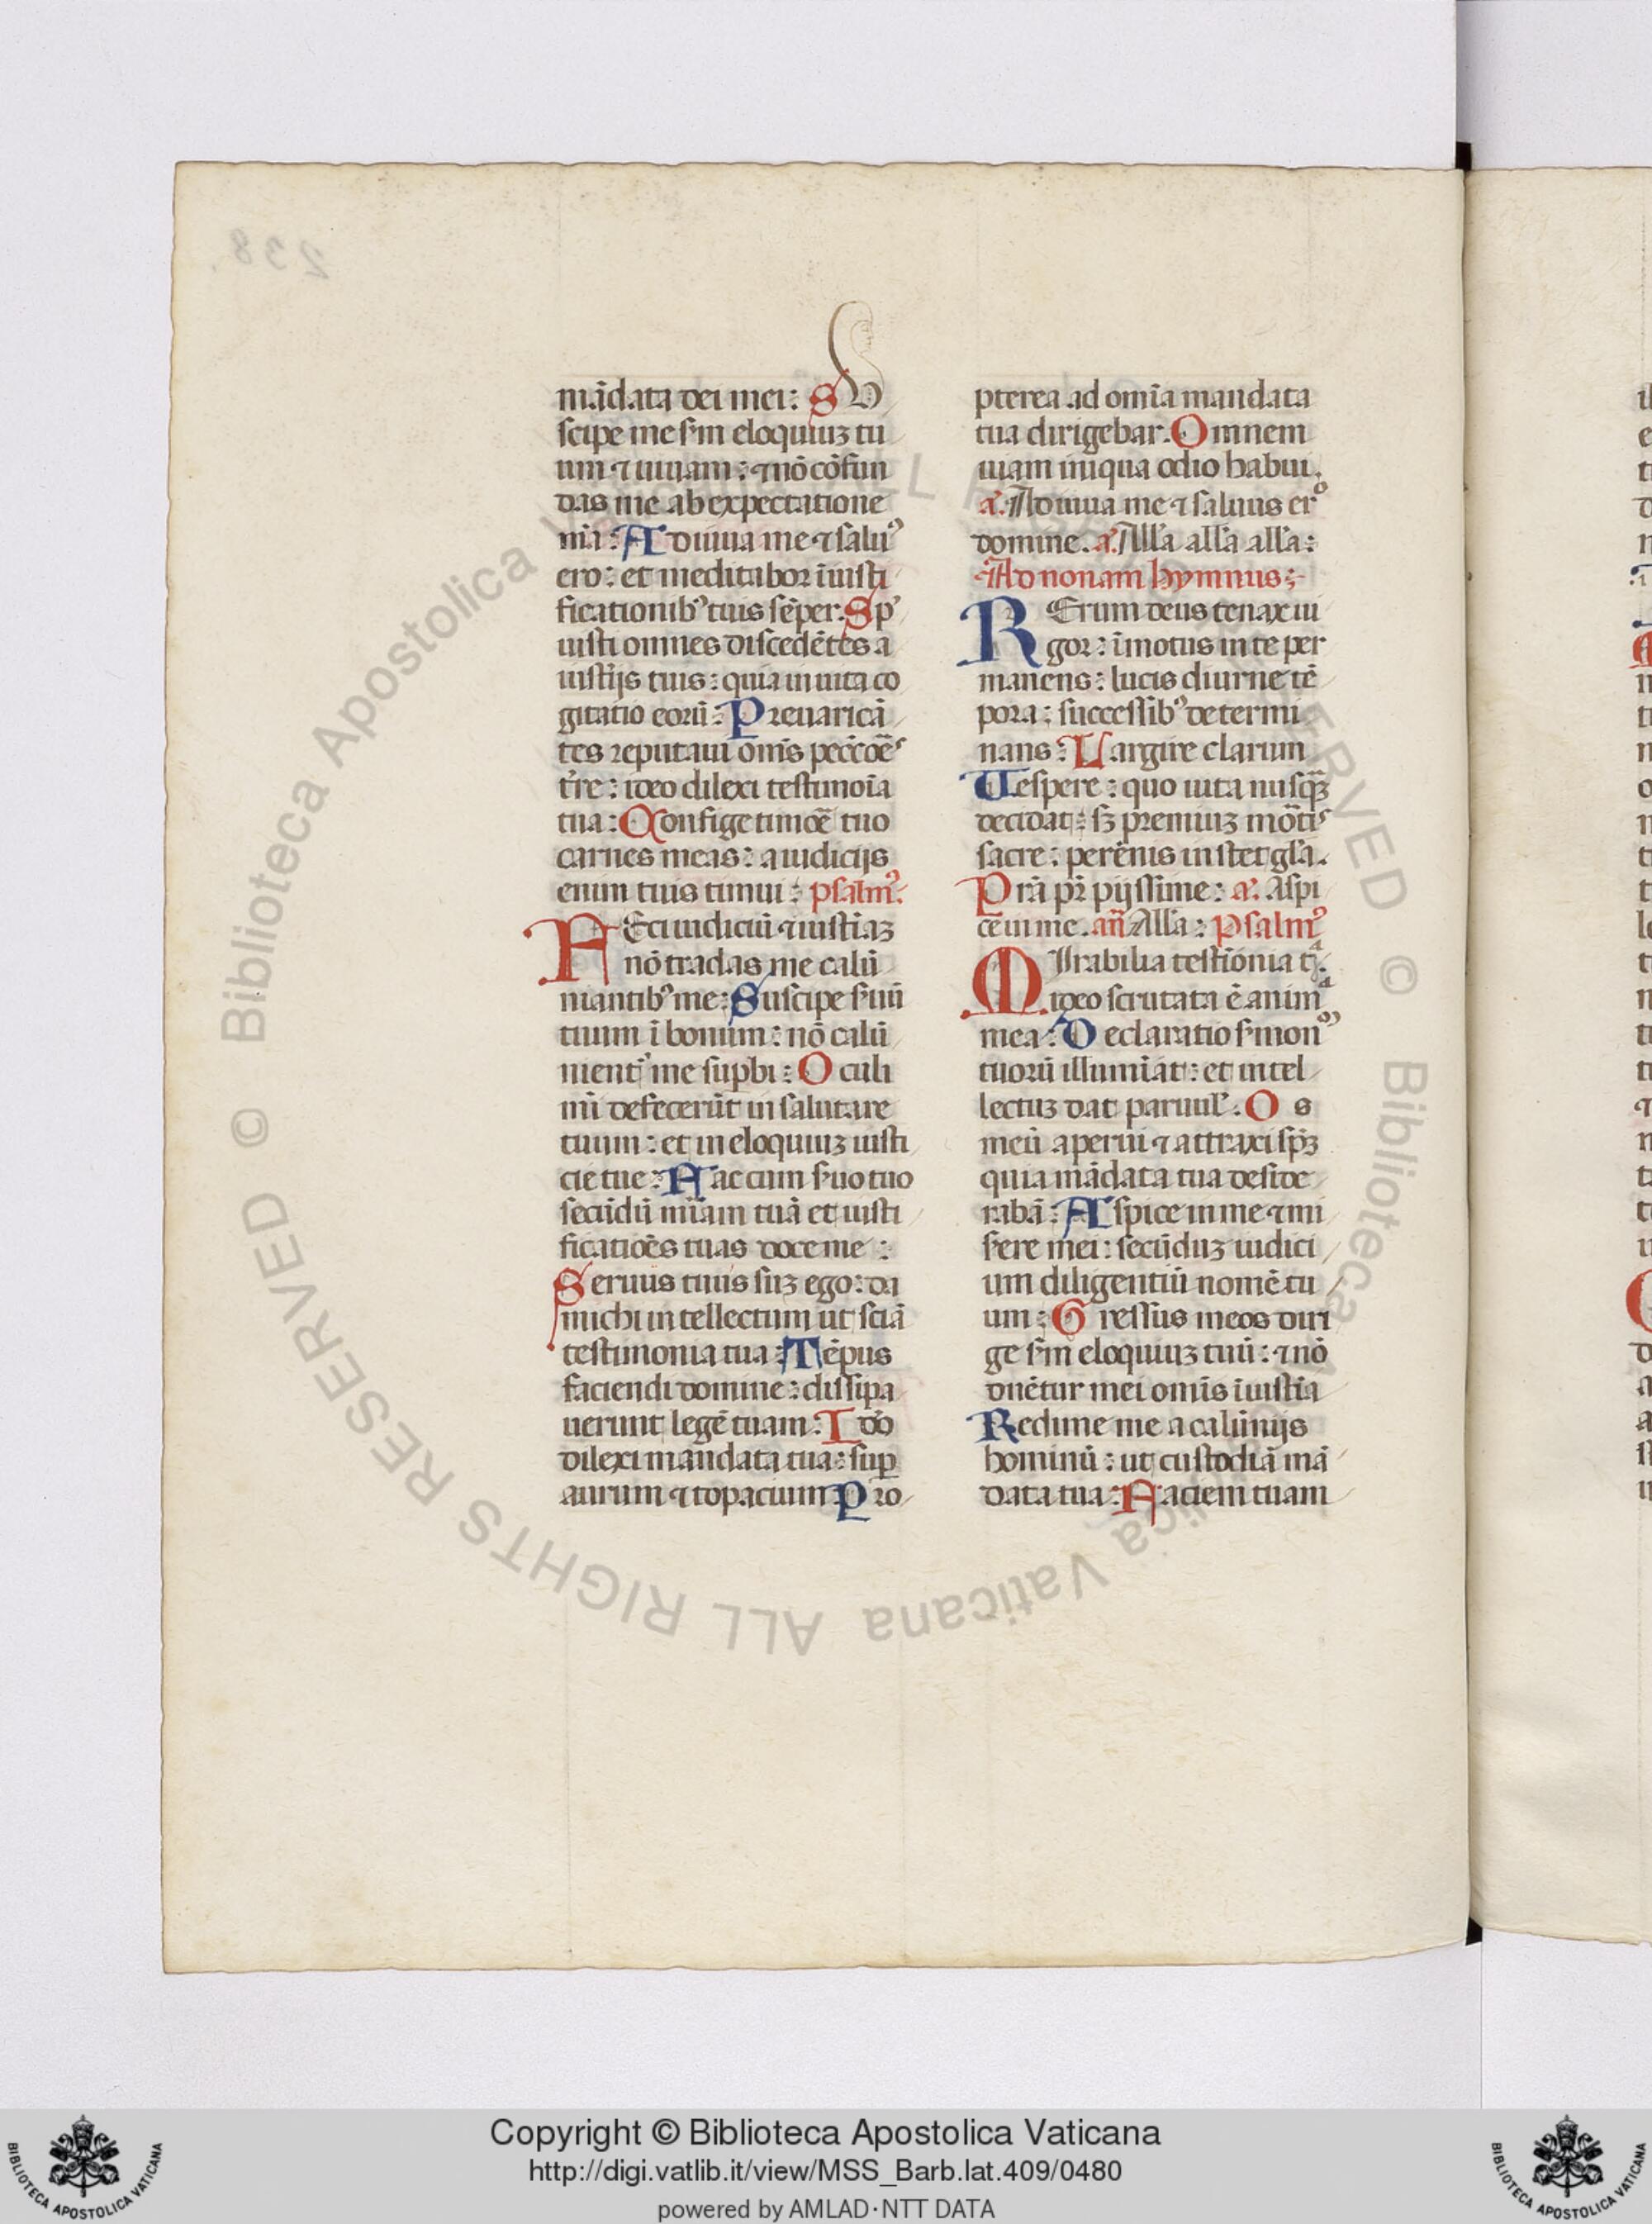 238.
mādata dei mei: Su
scipe me sm̄ eloquiuꝫ tu
um ⁊ uiuam: ⁊ nō cōfun
das me ab expectatione
mīa: Adiuua me ⁊ saluꝰ
ero: et meditabor ī iusti
ficationibꝰ tuis sēper. Sp̄
uisti omnes discedētes a
iustīijs tuis: quia iniusta co
gitatio eorū: Preuaricā
tes reputaui omīs pecc̄oēs
tr̄re: ideo dilexi testimoīa
tua: Confige timoē tuo
carnes meas: a iudicijs
enim tuis timui: psalm̄ꝰ.
FEci iudiciū ⁊ iustīaꝫ
nō tradas me calū
niantibꝰ me: Suscipe s̄uū
tuum ī bonum: nō calū
nient᷑ me suꝑbi: Oculi
mī defecerūt in salutare
tuum: et in eloquiuꝫ iusti
cie tue: Fac cum s̄uo tuo
secūdū mīam tuā et iusti
ficatiōēs tuas doce me:
Seruus tuus suꝫ ego: da
michi intellectum ut sciā
testimonia tua: Tēpus
faciendi domine: dissipa
uerunt legē tuam: Ido̅
dilexi mandata tua: suꝑ
aurum ⁊ topacium Pro
pterea ad omīa mandata
tua dirigebar. Omnem
uiam iniqua odio habui.
a. Adiuua me ⁊ saluus erº
domine. a. All̄a all̄a all̄a:
Ad nonam hymnus:
RErum deus tenax ui
gor: īmotus in te per
manens: lucis diurne tē
pora: successibꝰ determi
nans: Largire clarum
Uespere: quo uita nusq̄ꝫ
decidat: sꝫ premiuꝫ mōtis
sacre: perēnis instet gl̄a.
Prā pr̄ pijssime: a. Aspi
ce in me. an̄ All̄a: Psalmꝰ
MIrabilia testīonia tᵃ.
ideo scrutata ē animᵃ
mea: Declaratio s̄mon
tuorū illumīat: et intel
lectuꝫ dat paruul̄. Os
meū aperui ⁊ attraxi sp̄ꝫ
quia mādata tua deside
rabā: Aspice in me ⁊ mi
s̄ere mei: secūduꝫ iudici
um diligentiū nomē tu
um: Gressus meos diri
ge sm̄ eloquiuꝫ tuū: ⁊ nō
dn̄ētur mei omīs īiustīa
Redime me a calūnijs
hominū: ut custodiā mā
data tua: Faciem tuam
© Biblioteca Apostolica Vaticana ALL RIGHTS RESERVED © Biblioteca Apostolica Vaticana ALL RIGHTS RESERVED
Copyright © Biblioteca Apostolica Vaticana
http://digi.vatlib.it/view/MSS_Barb.lat.409/0480
powered by AMLAD·NTT DATA
BIBLIOTECA APOSTOLICA VATICANA
BIBLIOTECA APOSTOLICA VATICANA